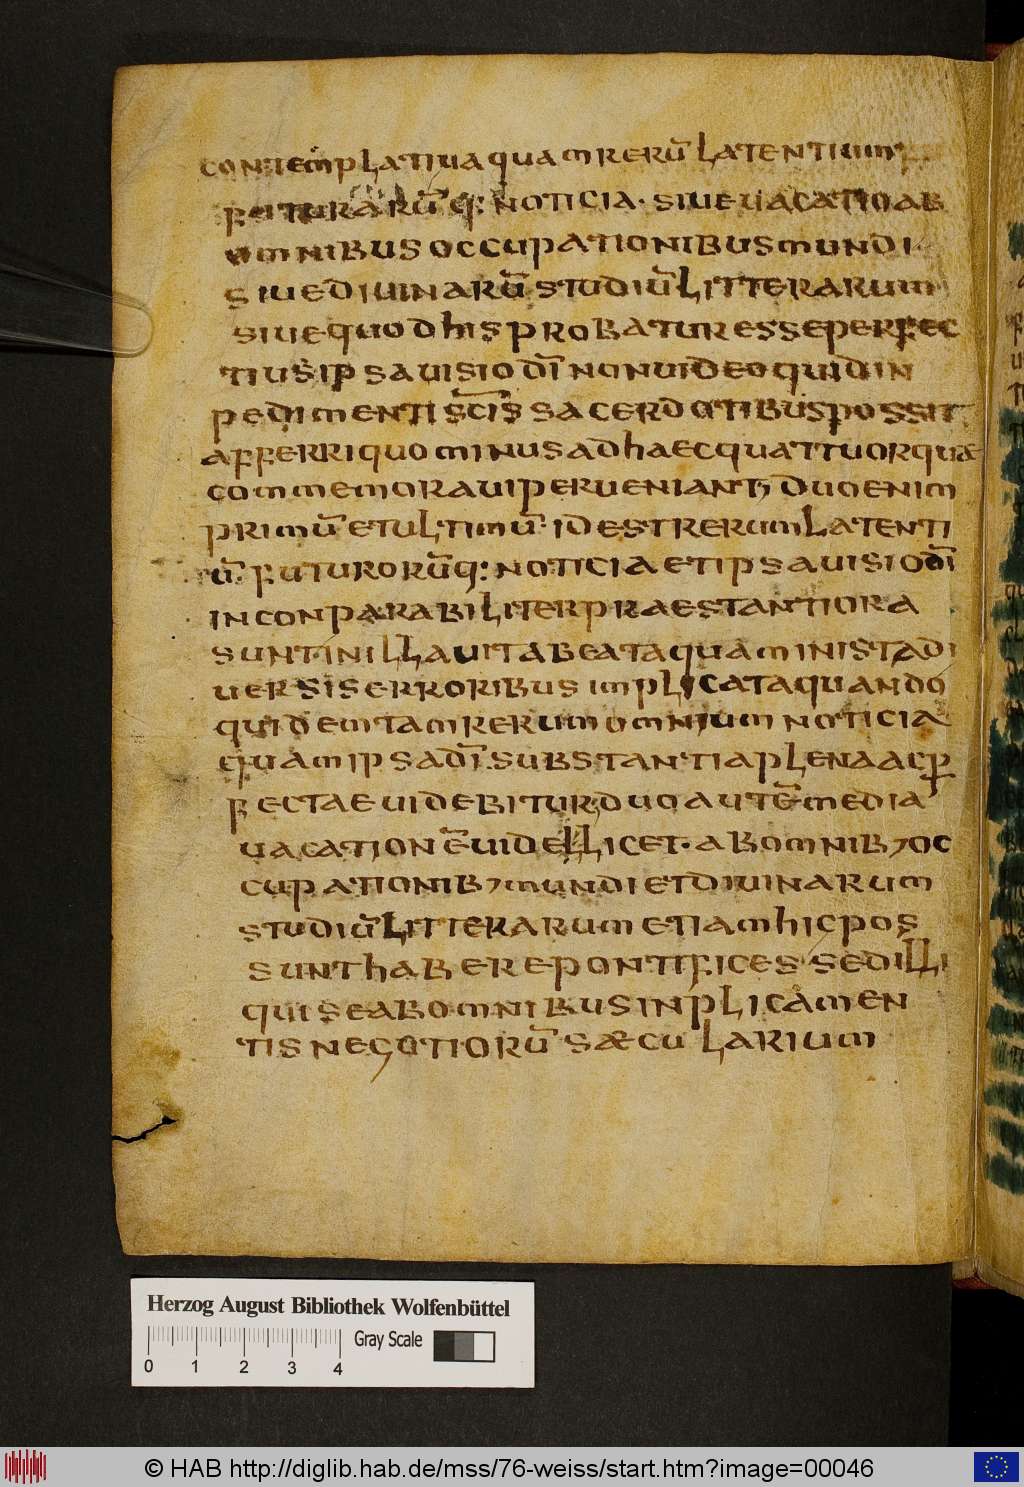 contemplatiua quam rerū latentium
futurarūq: noticia · siue uacatio ab
omnibus occupationibus mundi
siue diuinarū studiū litterarum
siue quod his probatur esse perfec
tius ipsa uisio dī non uideo quid in
pedimenti scīs sacerdotibus possit
afferri quominus ad haec quattuor quae
commemoraui perueniant, duo enim
primū et ultimū · id est rerum latenti
ū · futurorūq: noticia et ipsa uisio dī
inconparabiliter praestantiora
sunt in illa uita beata quam in ista di
uersis erroribus implicata quando
quidem tam rerum omnium noticia
quam ipsa dī substantia plena ac p̱
fecta euidebitur, duo autē media
uacationē uidellicet · ab omnib, oc
cupationib, mundi et diuinarum
studiū litterarum etiam hic pos
sunt habere pontifices sed illi
qui se ab omnibus inplicamen
tis negotiorū sæcularium
Herzog August Bibliothek Wolfenbüttel
Gray Scale
0 1 2 3 4
© HAB http://diglib.hab.de/mss/76-weiss/start.htm?image=00046